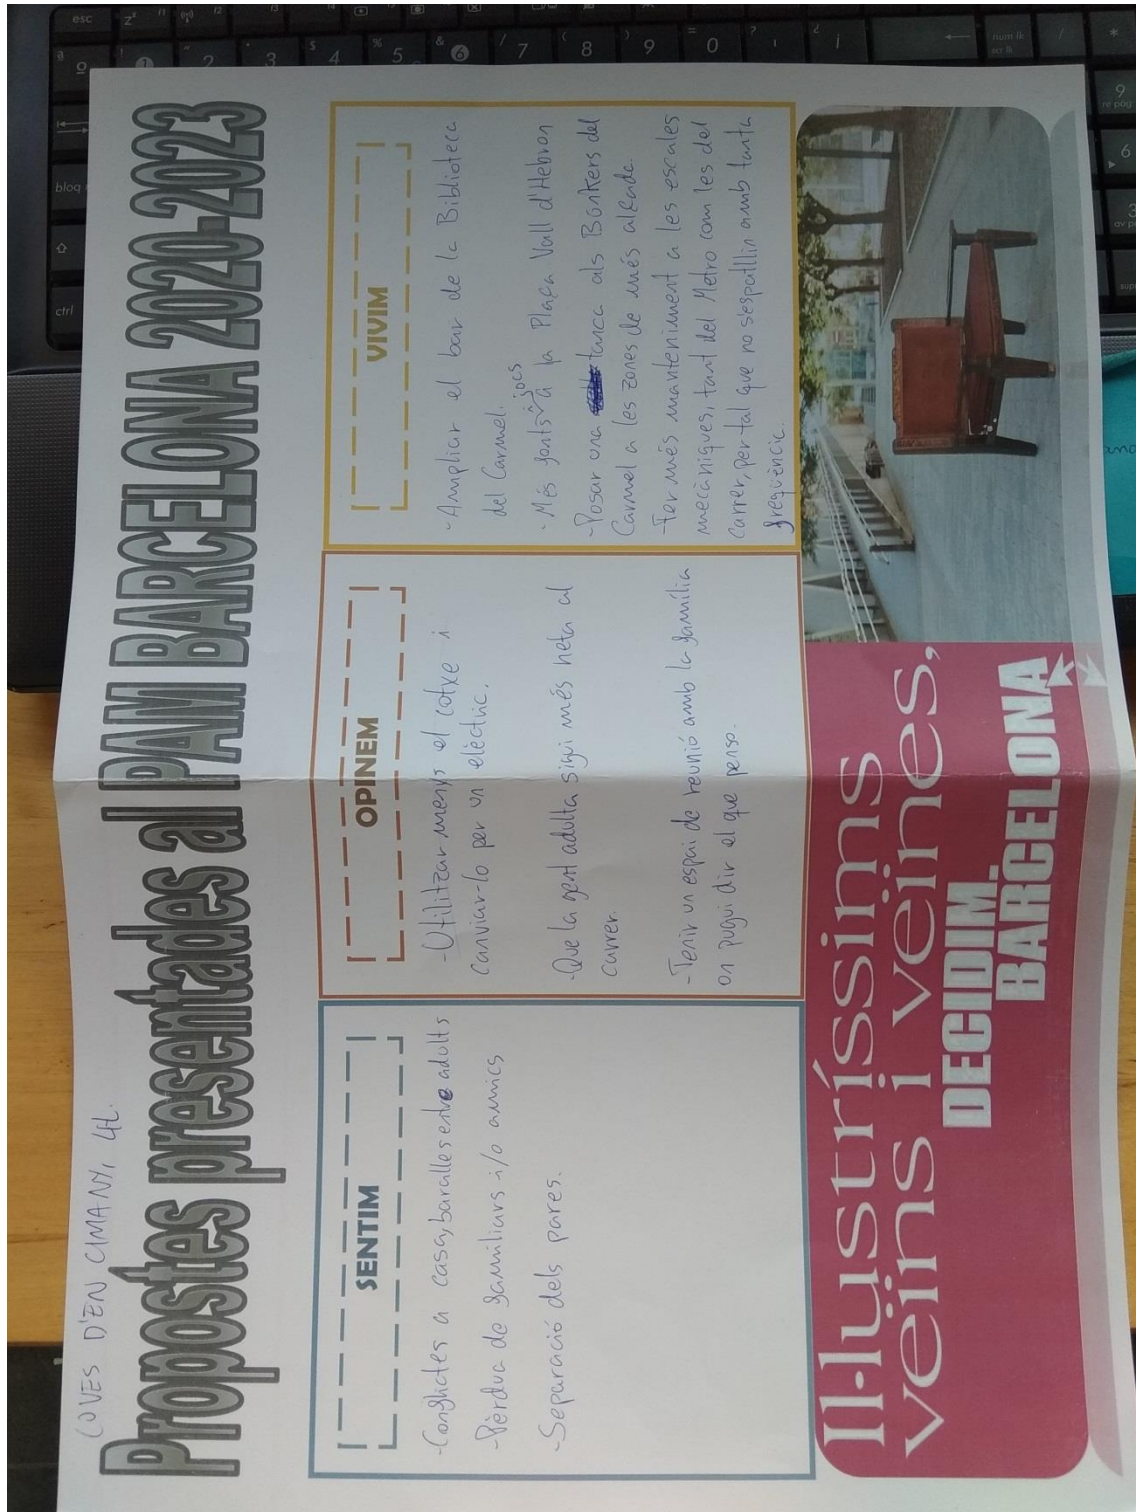 COVES D'EN CIMANY, 42.
Propostes presentades al PAM BARCELONA 2020-2023
SENTIM
-Conflictes a casa, baralles entre adults
-Pèrdua de familiars i/o amics
-Separació dels pares.
OPINEM
-Utilitzar menys el cotxe i
canviar-lo per un elèctric.
-Que la gent adulta sigui més neta al
carrer.
-Tenir un espai de reunió amb la família
on pugui dir el que penso.
VIVIM
-Ampliar el bar de la Biblioteca
del Carmel.
-Més fonts i jocs a la Plaça Vall d'Hebron
-Posar una tanca als Búnkers del
Carmel a les zones de més alçada.
-Fer més manteniment a les escales
mecàniques, tant del Metro com les del
carrer, per tal que no s'espatllin amb tanta
freqüència.
Il·lustríssims
veïns i veïnes,
DECIDIM.
BARCELONA
esc
1
2
3
4
5
6
7
8
9
0
num lk
scr lk
bloq
ctrl
9
re pág
6
3
av p
supr